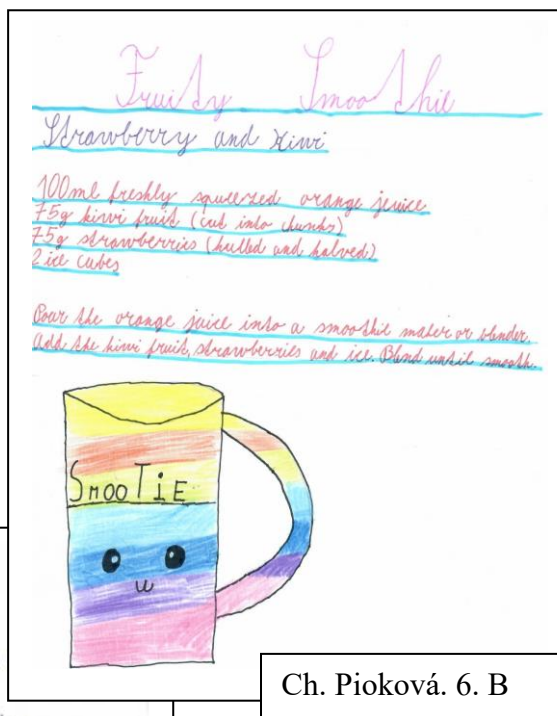 Fruity Smoothie
Strawberry and Kiwi
100ml freshly squeezed orange jenice
75g kiwi fruit (cut into chunks)
75g strawberries (hulled and halved)
2 ice cubes
Pour the orange juice into a smoothie maker or blender.
add the kiwi fruit, strawberries and ice. Blend until smooth.
SMOOTiE
Ch. Pioková. 6. B